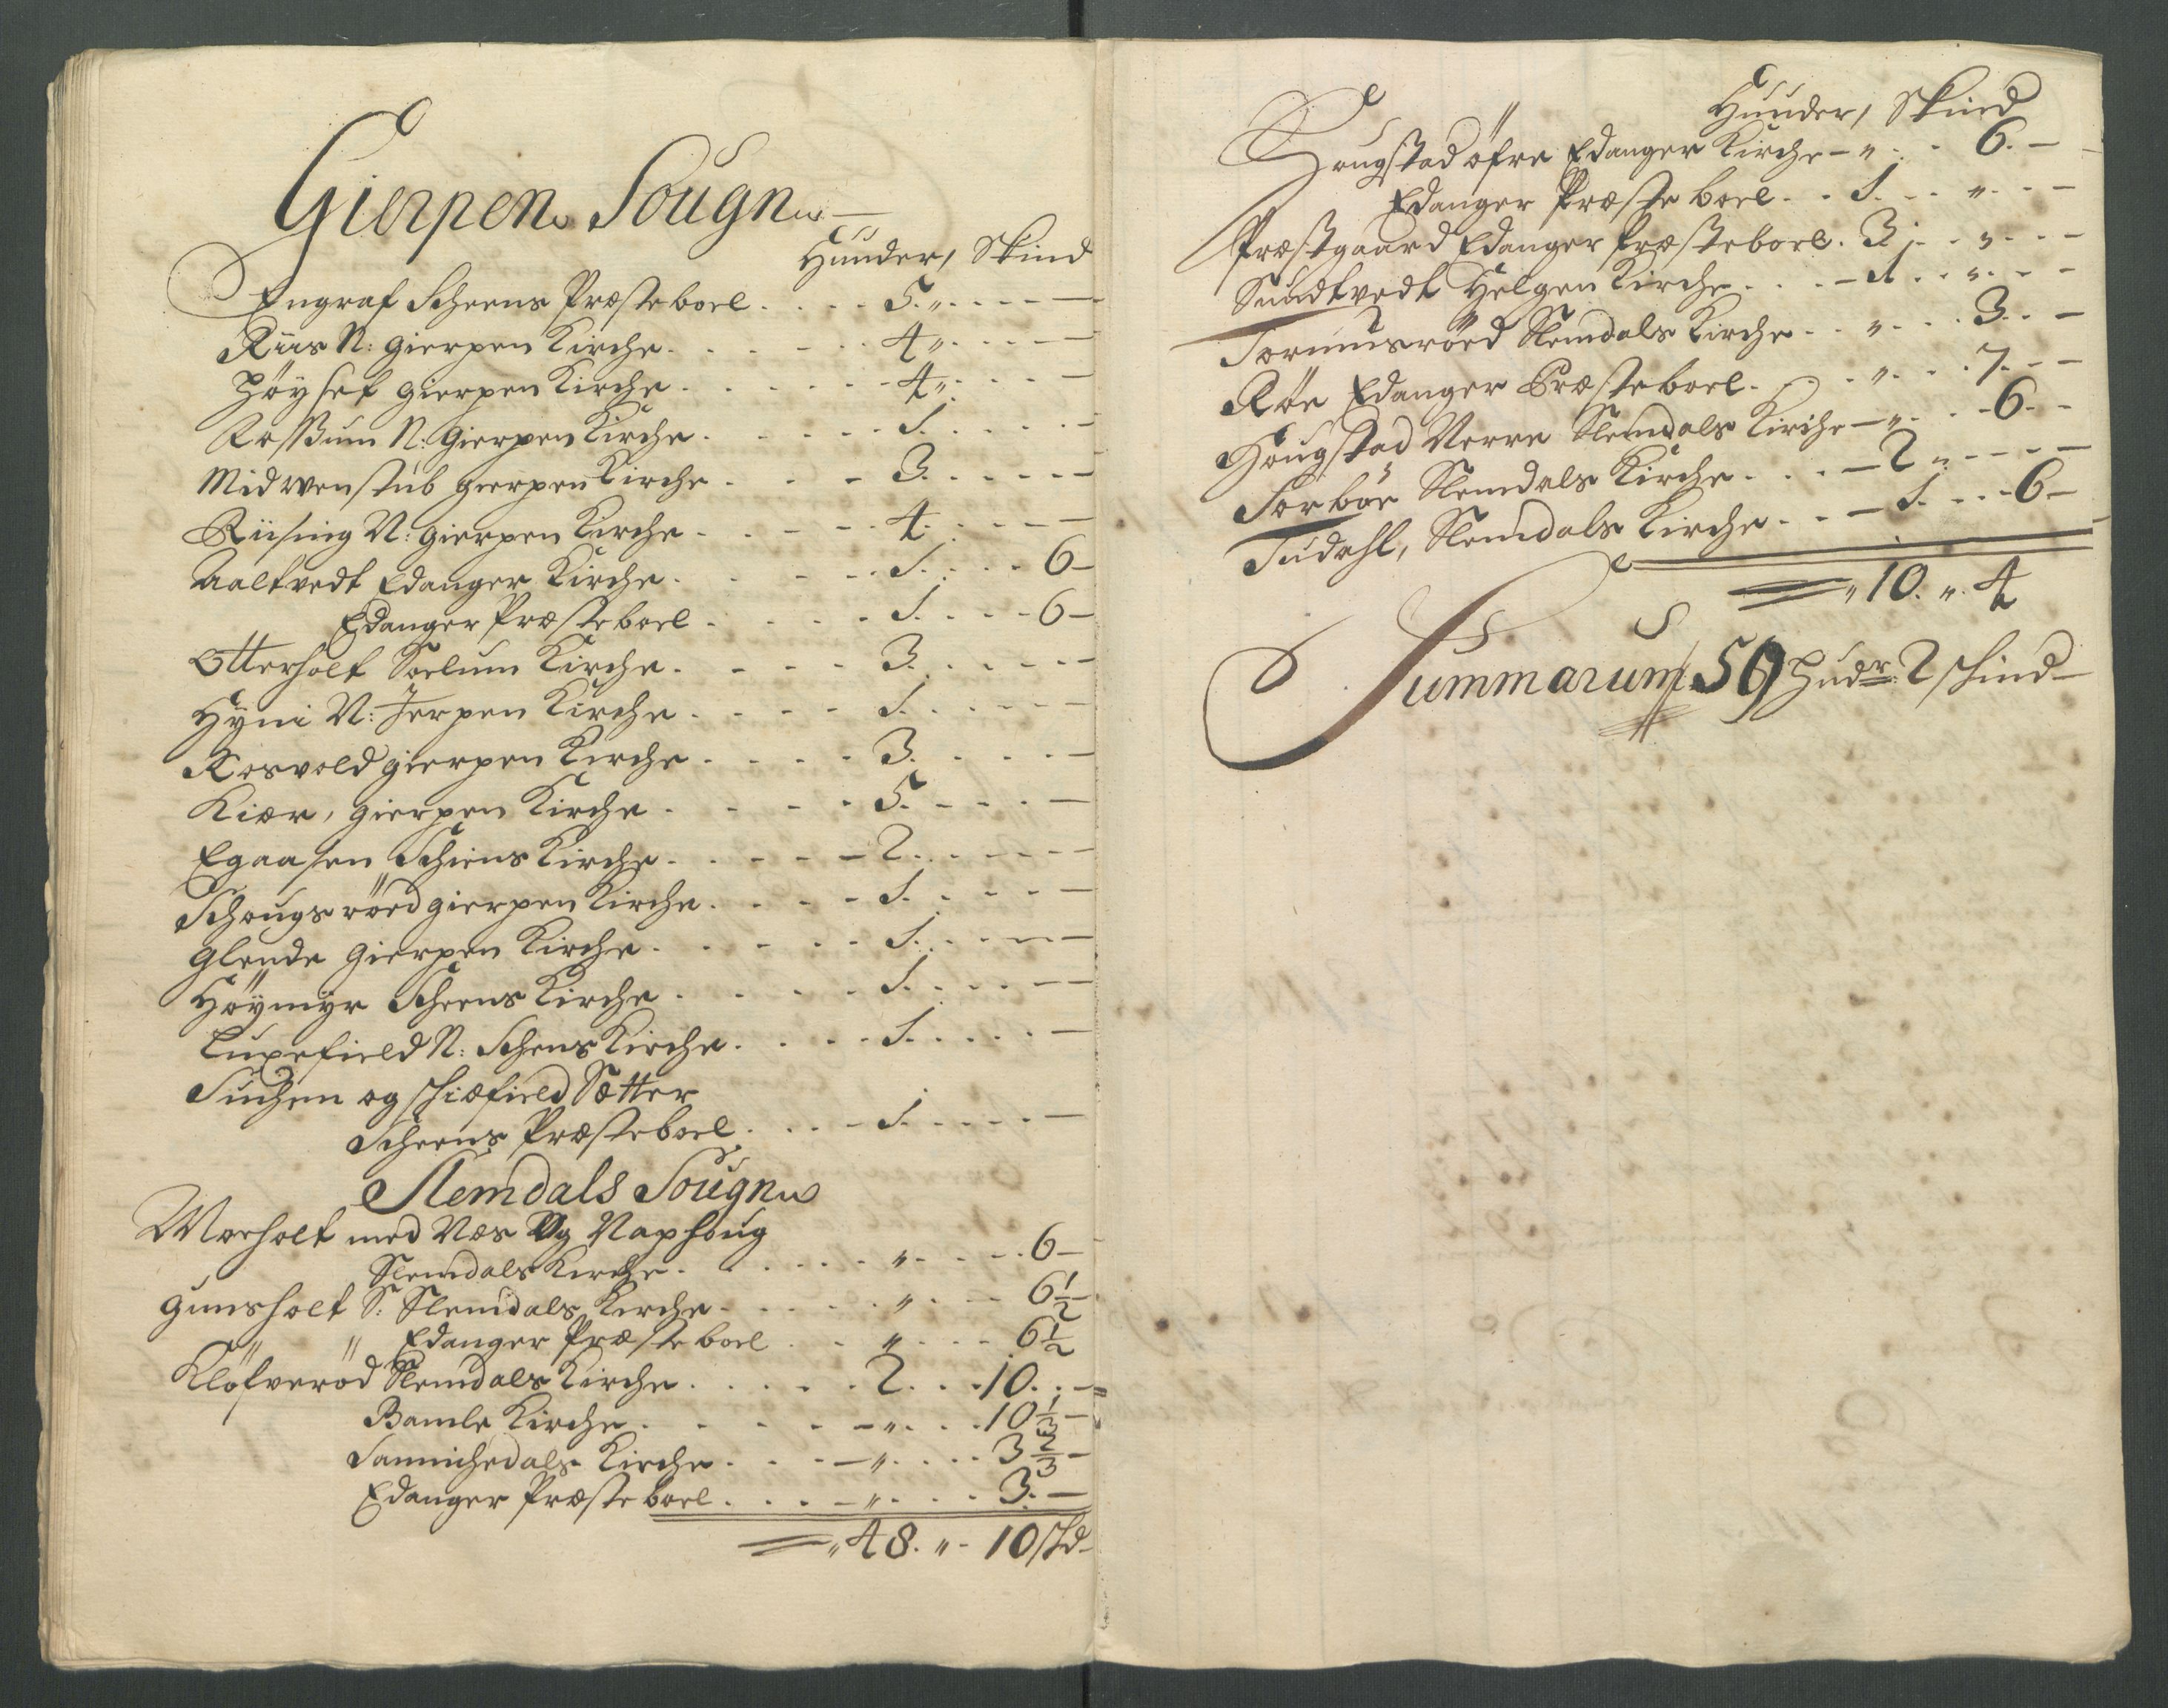 Gierpens Sougn
Huuder, Skind
Engraf Scheens Præsteboel . . . . 5. „ . . . . —
Riis N: Gierpen Kirche . . . . . . 4 „ . . . . —
Höyset Gierpen Kirche . . . . . . 4 „ . . . . —
Rossum N: Gierpen Kirche . . . . . 1 . . . . . —
Midwenstüb Gierpen Kirche . . . 3 . . . . . —
Riising N: Gierpen Kirche . . . . 4 . . . . —
Aaltvedt Edanger Kirche . . . . . 1 . . . . 6 —
Edanger Præsteboel . . . . . 1 . . . . 6 —
Otterholt Soelum Kirche . . . . 3 . . . . . —
Hÿni N: Jerpen Kirche . . . . . 1 . . . . . —
Rosvold Gierpen Kirche . . . . . 3 . . . . —
Kiær, Gierpen Kirche . . . . 5 . . . . —
Egaasen Schiens Kirche . . . . — 2 . . . . . —
Schougsröed Gierpen Kirche . . . . 1 . . . . —
Glende Gierpen Kirche . . . . . . 1 . . . . —
Höymÿr Scheens Kirche . . . . . 1 . . . . —
Luxefield N: Schens Kirche . . . . . 1 . . . . . —
og schiæfield Sætter
Scheens Præsteboel . . . . 1 . . . . . —
Slemdals Sougn
Morholt med Næs Og Naphoug
Slemdals Kirche . . . . . . „ . . . . 6 —
Gunsholt S: Slemdals Kirche . . . . . „ . . . — 6 1/2
„ „ Edanger Præsteboel . . „ . . . . 6 1/2
Klöfveröd Slemdals Kirche . . . . . 2 . . . 10 . . —
Bamle Kirche . . . . . — „ . . . 10 1/3 —
Sannichedals Kirche . . . — „ . . . . 3 2/3 —
Edanger Præsteboel . . . — „ . . . . 3. —
„ 48. „ 10 skd
Huuder, Skind
Hougstad öfre Edanger Kirche — „ . . 6. —
Edanger Præsteboel . . 1 . . . „ . . . —
Præstgaard Edanger Præsteboel . 3 . . . „ . . . —
Sundtvedt Helgen Kirche . . . — 1 . . . „ . . . —
Tormusröed Slemdals Kirche . . „ . . . 3. . —
Röe Edanger Præsteboel . . . „ . . . 7. . —
Hougstad Nerre Slemdals Kirche — „ . . . 6. . —
Torböe Slemdals Kirche . . . — 2 „ . . . —
Tudahl, Slemdals Kirche . . . — 1 . . . 6 —
„ 10. „ 4
Summarum 59 Hudr: 2 skind